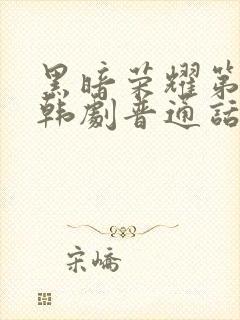 黑暗荣耀第
韩剧普通话
宋峤